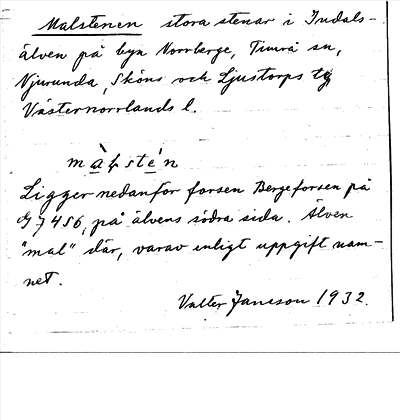 Malstenen stora stenar i Indals-
älven på byn Norrberge, Timrå sn,
Njurunda, Sköns och Ljustorps tg
Västernorrlands l.
Ligger nedanför forsen Bergeforsen på
G 7456, på älvens södra sida. Älven
"mal" där, varav enligt uppgift nam-
net.
Valter Jansson 1932.